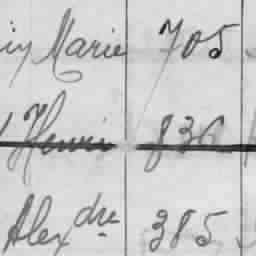 Marie 705
Henri 836
Alexdre 385